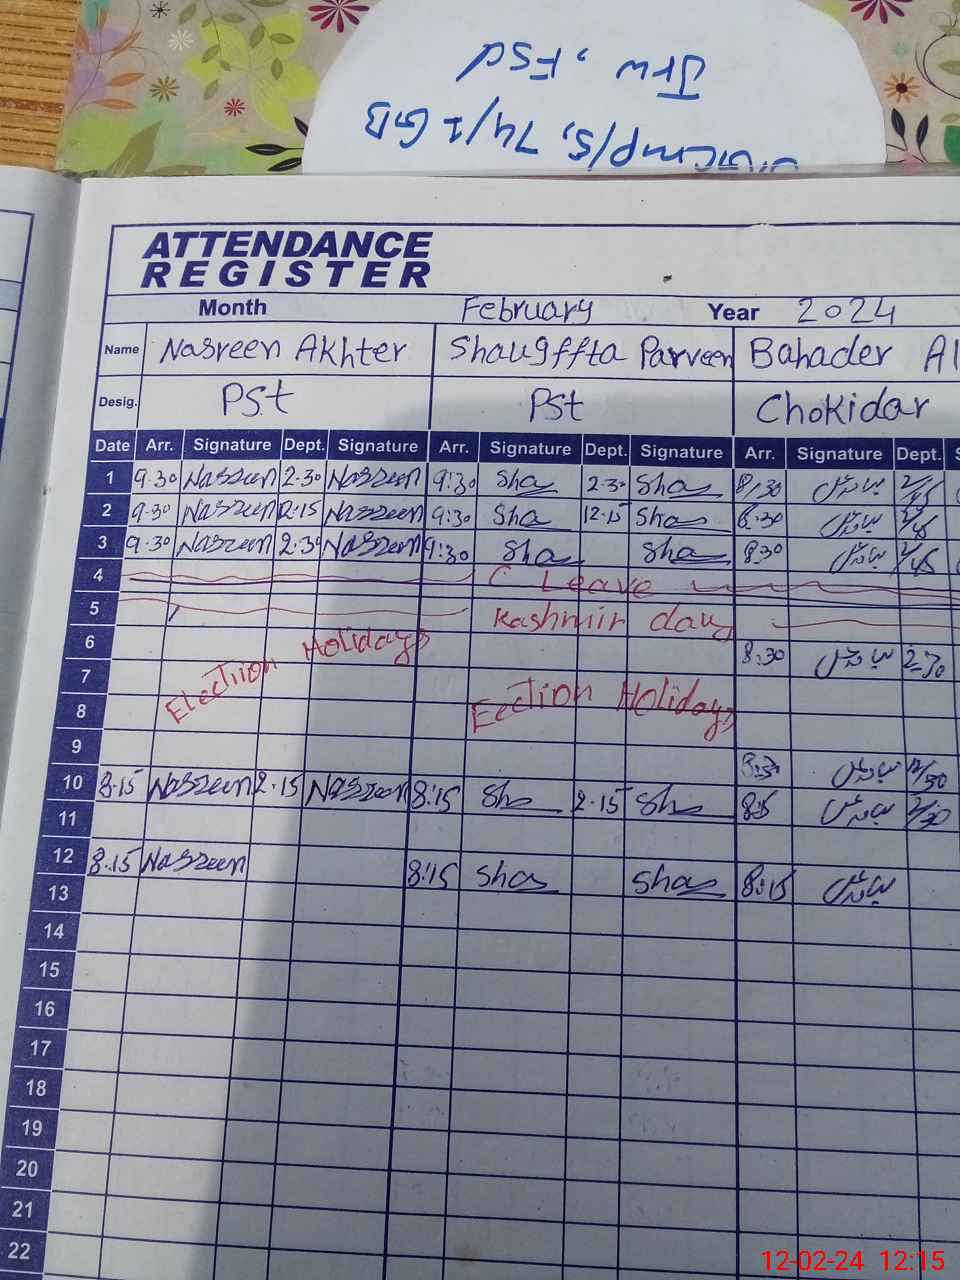 Jrw , Fsd
GCMP/S, 74/2 GB
ATTENDANCE
REGISTER
Month February Year 2024
Name Nasreen Akhter Shaugffta Parveen Bahader Al
Desig. PSt PSt Chokidar
Date Arr. Signature Dept. Signature Arr. Signature Dept. Signature Arr. Signature Dept. S
1 9.30 Nasreen 2.30 Nasreen 9:30 Sha 2.30 Sha 8/30
2 9.30 Nasreen 2.15 Nasreen 9:30 Sha 12.15 Sha 8.30
3 9.30 Nasreen 2.30 Nasreen 9:30 Sha Sha 8.30
4 C Leave
5 Kashmir day
6 Election Holidays 8:30 2-30
7 Eection Holidays
8
9
10 8.15 Nasreen 2.15 Nasreen 8:15 Sha 2.15 Sha 8:5 2/30
11
12 8.15 Nasreen 8:15 Sha Sha 8:15
13
14
15
16
17
18
19
20
21
22
12-02-24 12:15